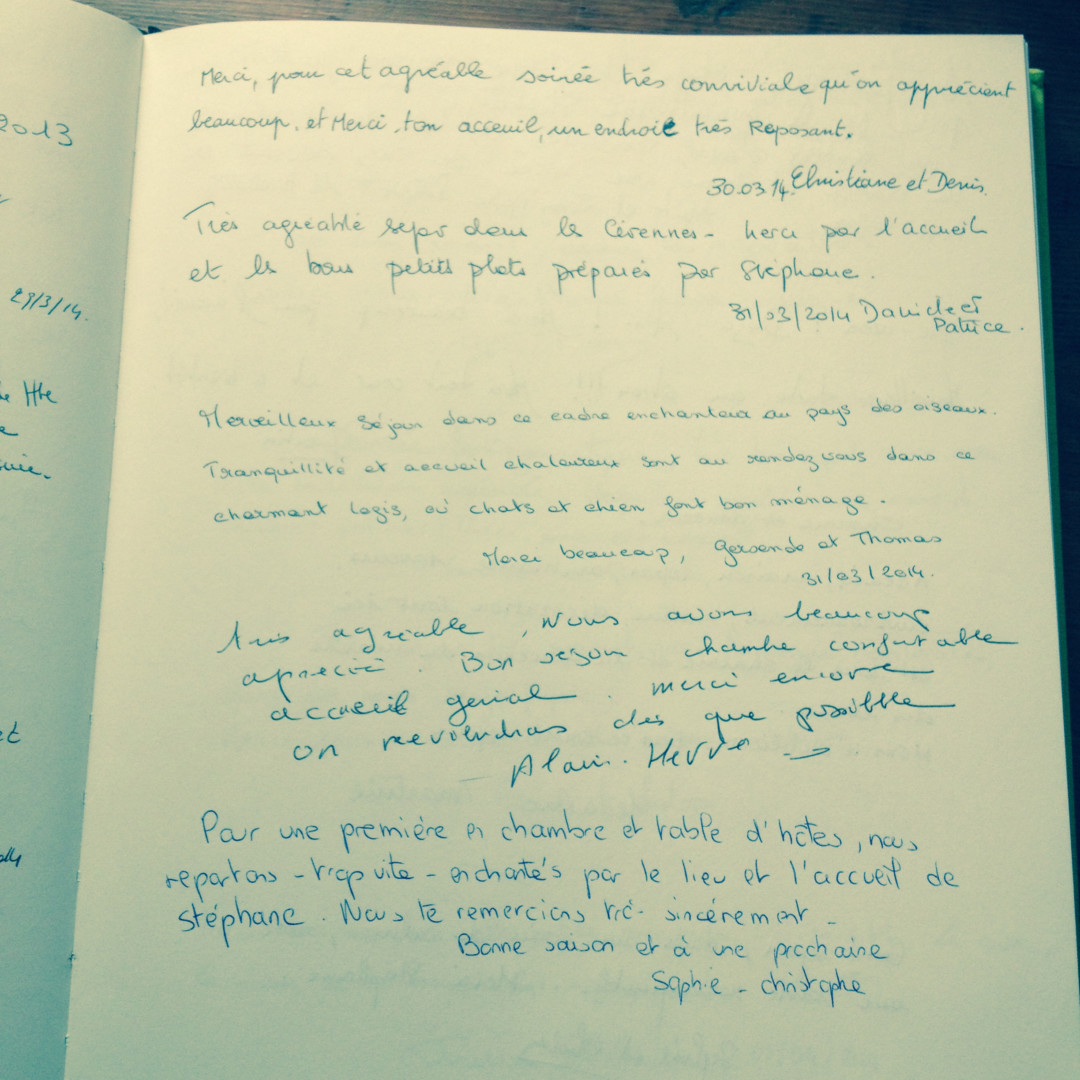 2013
29/3/14.
de Hte
et
Merci, pour cet agréable soirée très conviviale qu'on apprécient
beaucoup. et Merci, ton acceuil, un endroit très Reposant.
30.03.14. Christiane et Denis.
Très agréable repos dans les Cévennes - Merci par l'accueil
et les bons petits plats préparés par Stéphane.
31/03/2014 Danièle et
Patrice.
Merveilleux séjour dans ce cadre enchanteur au pays des oiseaux.
Tranquillité et accueil chaleureux sont au rendez vous dans ce
charmant logis, où chats et chien font bon ménage.
Merci beaucoup, Gersende et Thomas
31/03/2014.
très agréable, Nous avons beaucoup
aprecié. Bon sejour chambre confortable
accueil genial. merci encore
on reviendras dès que possible
Alain. Hervé
Pour une première en chambre et table d'hôtes, nous
repartons - trop vite - enchantés par le lieu et l'accueil de
Stéphane. Nous te remercions très sincèrement -
Bonne saison et à une prochaine
Sophie - christophe